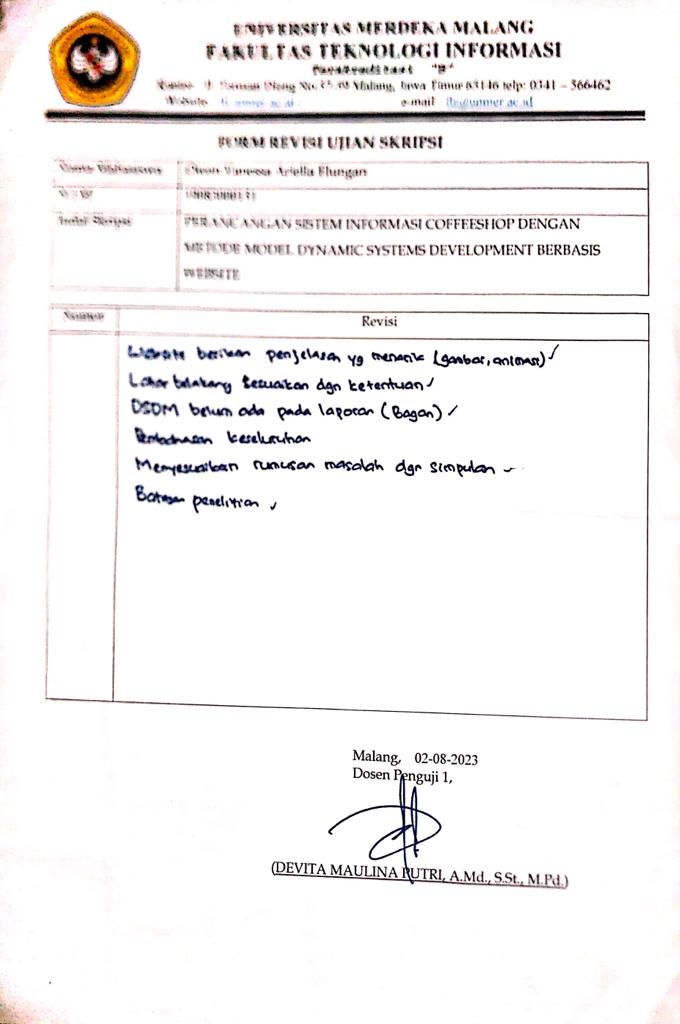 UNIVERSITAS MERDEKA MALANG
FAKULTAS TEKNOLOGI INFORMASI
Terakreditasi "B"
Malang, Jawa Timur 65146 telp: 0341 – 566462
Website e-mail fti@unmer.ac.id
FORM REVISI UJIAN SKRIPSI
Nama Mahasiswa Vanessa Ariella Elungan
Judul Skripsi PERANCANGAN SISTEM INFORMASI COFFEESHOP DENGAN
METODE MODEL DYNAMIC SYSTEMS DEVELOPMENT BERBASIS
WEBSITE
Nomor Revisi
Website berikan penjelasan yg menarik (gambar, animasi) ✓
Latar belakang sesuaikan dgn ketentuan ✓
DSDM belum ada pada laporan (Bagan) ✓
Pembahasan keseluruhan
Menyesuaikan rumusan masalah dgn simpulan ✓
Batasan penelitian ✓
Malang, 02-08-2023
Dosen Penguji 1,
(DEVITA MAULINA PUTRI, A.Md., S.St., M.Pd.)